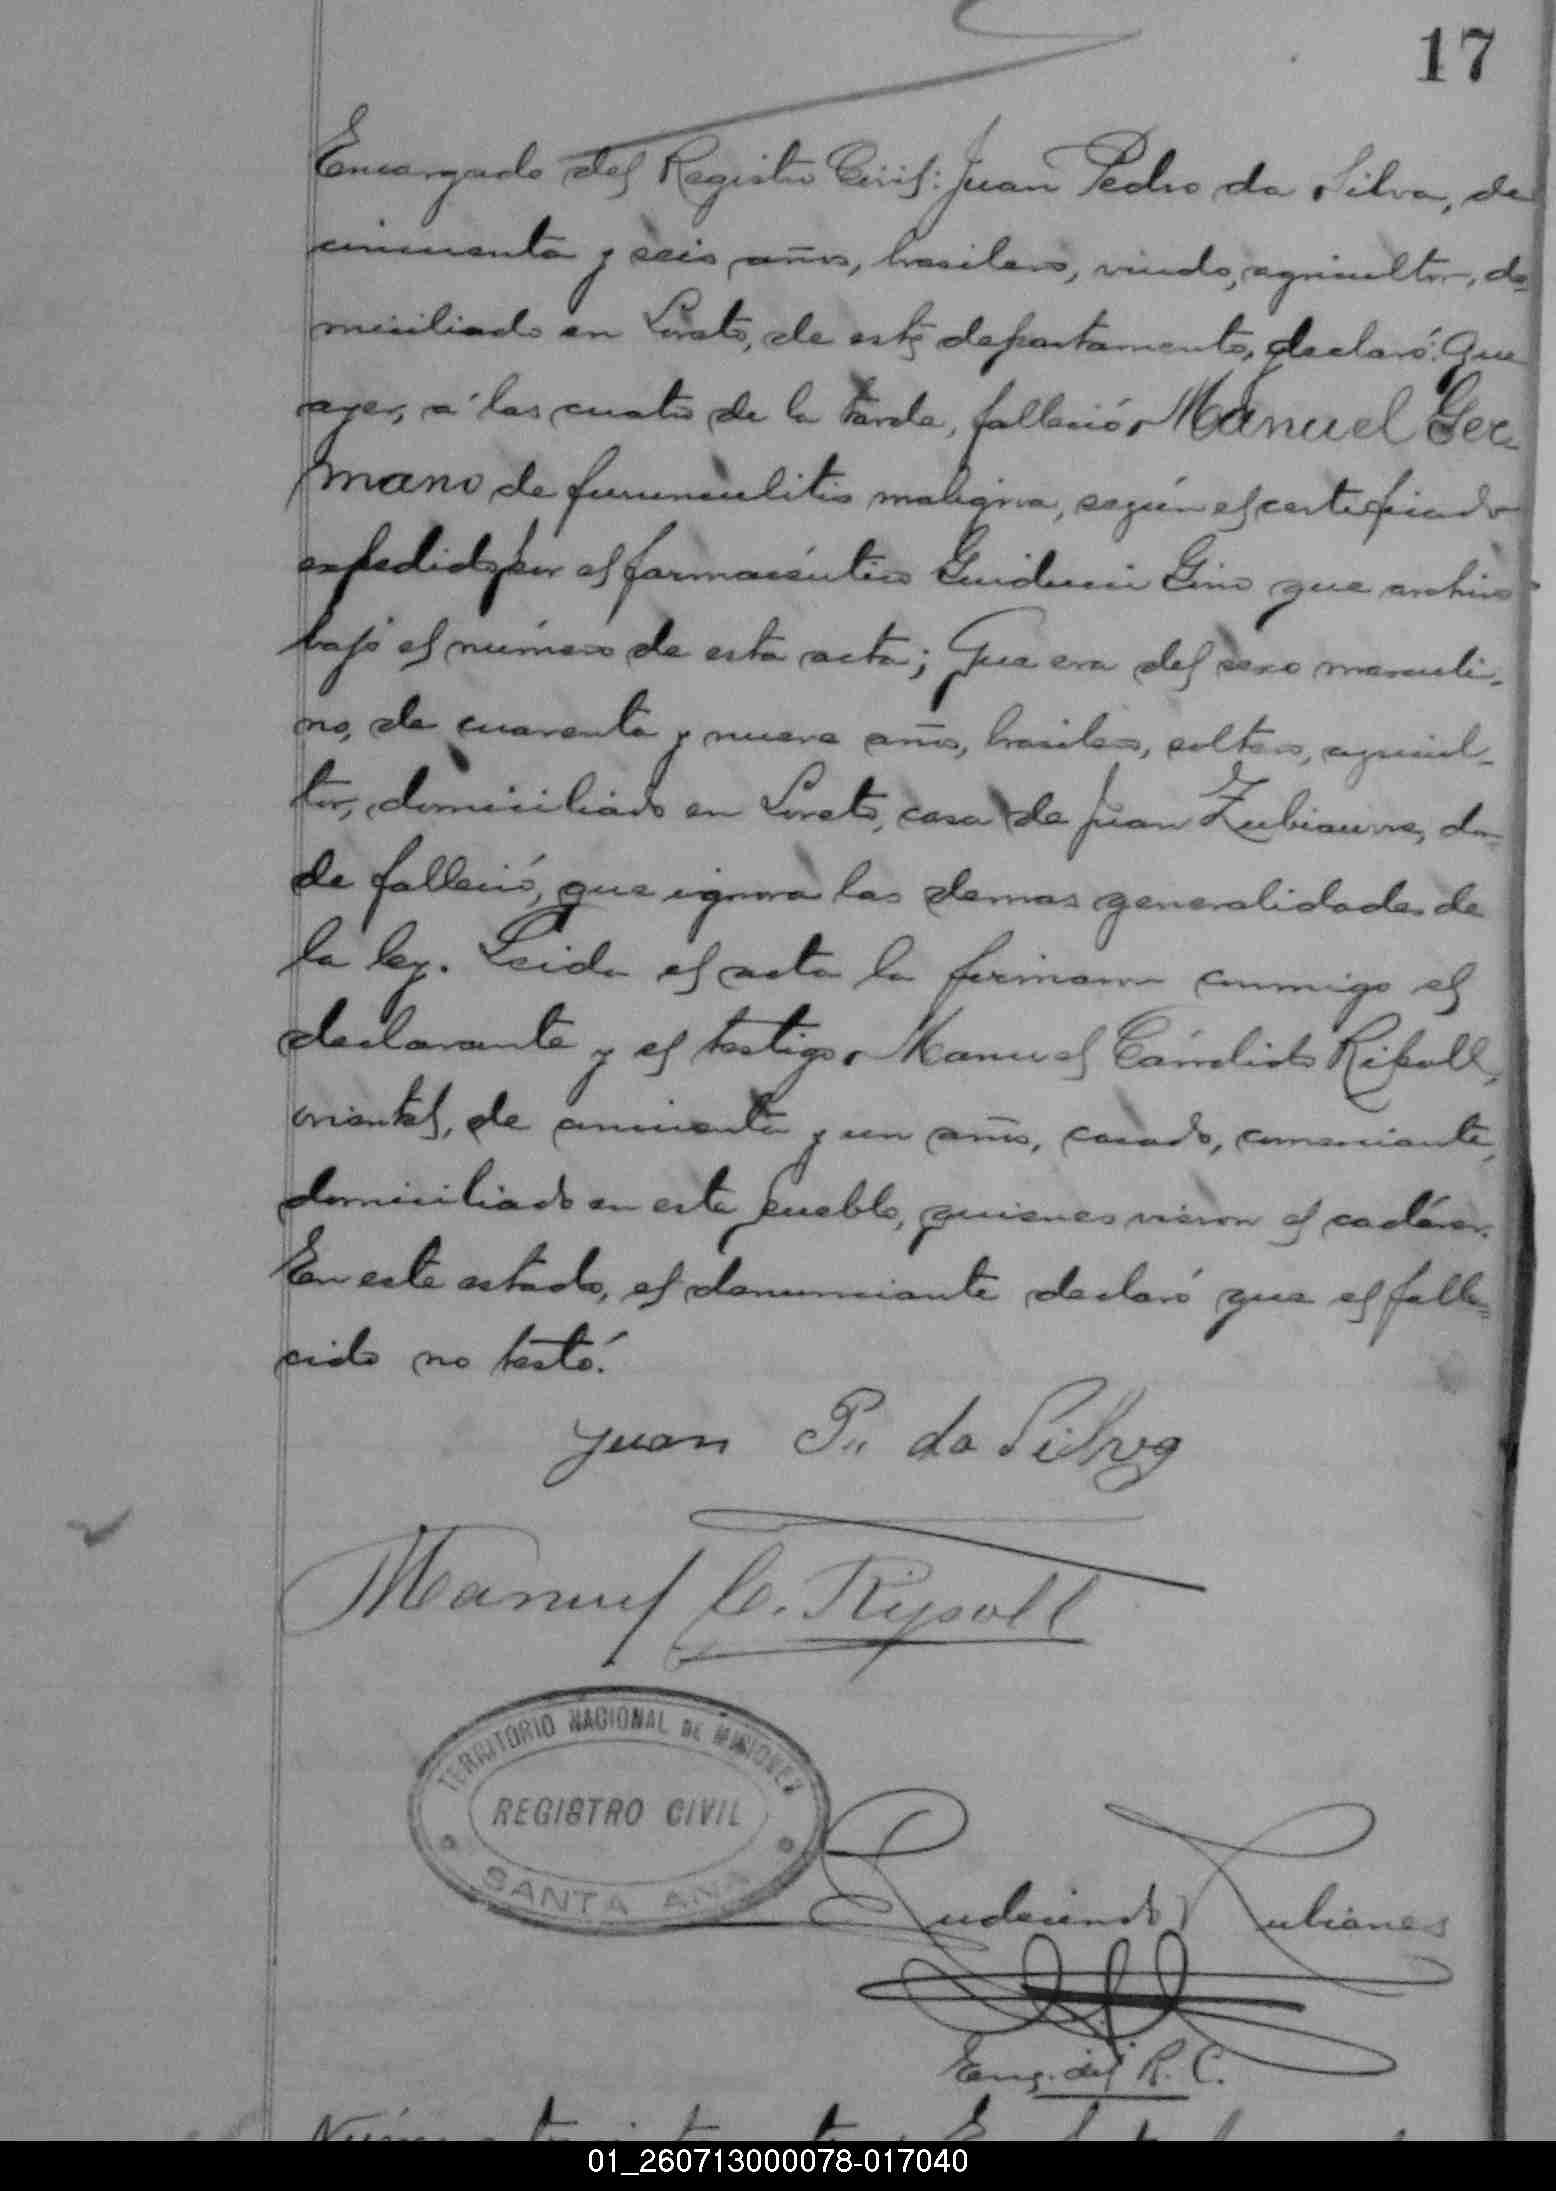 17
Encargado del Registro Civil: Juan Pedro da Silva, de
cincuenta y seis años, brasilero, viudo, agricultor, do-
miciliado en Loreto, de este departamento, declaró: Que
ayer, a' las cuatro de la tarde, falleció Manuel Ger-
mano de furunculitis maligna, según el certificado
expedido por el farmacéutico Guiducci Gino que archivo
bajo el número de esta acta; Que era del sexo masculi-
no, de cuarenta y nueve años, brasilero, soltero, agricul-
tor, domiciliado en Loreto, casa de Juan Zubiaurre, don-
de falleció, que ignora las demas generalidades de
la ley. Leida el acta la firmaron conmigo el
declarante y el testigo Manuel Cándido Ripoll,
oriental, de cincuenta y un años, casado, comerciante,
domiciliado en este pueblo, quienes vieron el cadáver.
En este estado, el denunciante declaró que el falle-
cido no testó.
Juan P. da Silva
Manuel C. Ripoll
TERRITORIO NACIONAL DE MISIONES
REGISTRO CIVIL
SANTA ANA
Rudecindo Lubianes
Eng. del R. C.
01_260713000078-017040